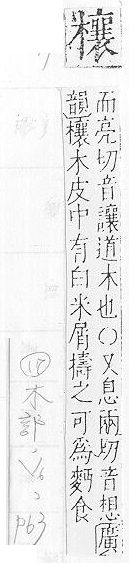 欀
而亮切音讓道木也〇又息兩切音想廣
韻欀木皮中有白米屑擣之可為麪食
⑮木部、
p63